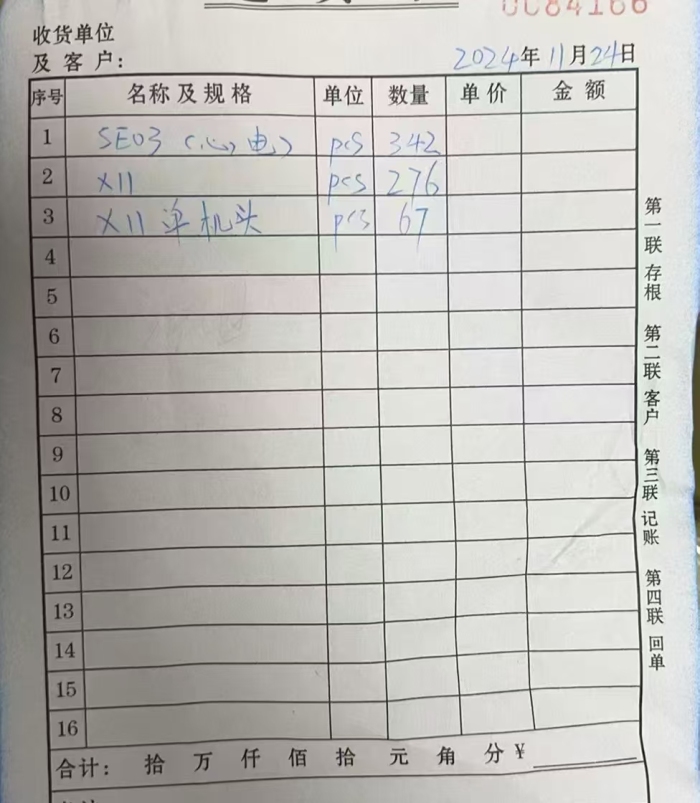 0084166
收货单位
及客户:
2024年11月24日
序号 名称及规格 单位 数量 单价 金额
1 SE03(心电) pcs 342
2 X11 pcs 276
3 X11单机头 pcs 67
4
5
6
7
8
9
10
11
12
13
14
15
16
合计: 拾 万 仟 佰 拾 元 角 分 ¥
第一联 存根 第二联 客户 第三联 记账 第四联 回单